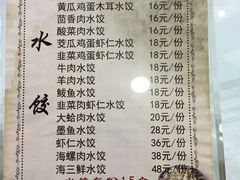 水饺
黄瓜鸡蛋木耳水饺 16元/份
茴香肉水饺 16元/份
酸菜肉水饺 16元/份
茭瓜鸡蛋虾仁水饺 18元/份
韭菜鸡蛋虾仁水饺 18元/份
牛肉水饺 18元/份
羊肉水饺 18元/份
鲅鱼水饺 18元/份
韭菜肉虾仁水饺 18元/份
大蛤肉水饺 20元/份
墨鱼水饺 28元/份
虾仁水饺 36元/份
海螺肉水饺 38元/份
海三鲜水饺 48元/份